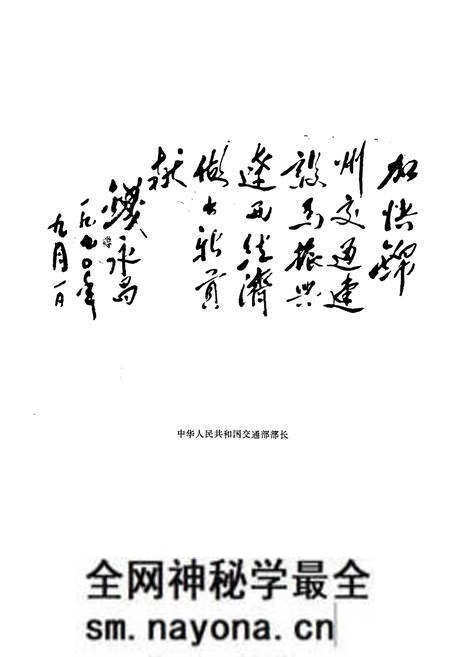 加快锦
州交通建
设为振兴
辽西经济
做出新贡
献
钱永昌
一九九〇年
九月一日
中华人民共和国交通部部长
全网神秘学最全
sm.nayona.cn